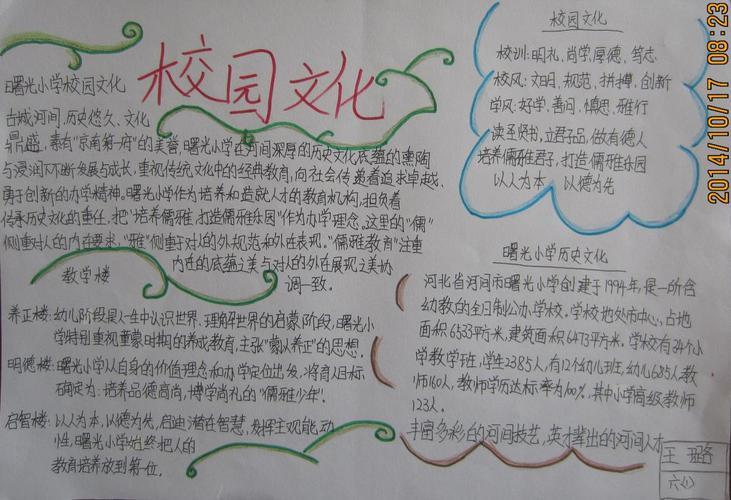 校园文化
曙光小学校园文化
古城河间,历史悠久、文化
鼎盛,素有"京南第一府"的美誉,曙光小学在河间深厚的历史文化底蕴的熏陶
与浸润下不断发展与成长,重视传统文化中的经典教育,向社会传递着追求卓越、
勇于创新的办学精神。曙光小学作为培养和造就人才的教育机构,担负着
传承历史文化的重任,把"培养儒雅,打造儒雅乐园"作为办学理念。这里的"儒"
侧重对人的内在要求,"雅"侧重于对人的外规范和外在表现。"儒雅教育"注重
内在的底蕴之美与对人的外在展现之美协
调一致。
教学楼
养正楼:幼儿阶段是人一生中认识世界、理解世界的启蒙阶段,曙光小
学特别重视童蒙时期的养成教育,主张"蒙以养正"的思想。
明德楼:曙光小学从自身的价值理念和办学定位出发,将育人目标
确定为:培养品德高尚,博学尚礼的"儒雅少年"。
启智楼:以人为本,以德为先,启迪潜在智慧,发挥主观能动
性,曙光小学始终把人的
教育培养放到第一位。
校园文化
校训:明礼、尚学、厚德、笃志
校风:文明、规范、拼搏、创新
学风:好学、善问、慎思、雅行
读圣贤书,立君子品,做有德人
培养儒雅君子,打造儒雅乐园
以人为本 以德为先
曙光小学历史文化
河北省河间市曙光小学创建于1994年,是一所含
幼教的全日制公办学校。学校地处市中心,占地
面积6533平方米,建筑面积6473平方米。学校有34个小
学教学班,学生2385人,有12个幼儿班,幼儿685人,教
师160人,教师学历达标率为100%,其中小学高级教师
123人。
丰富多彩的河间技艺,英才辈出的河间人才
王璐
六(1)
2014/10/17 08:23